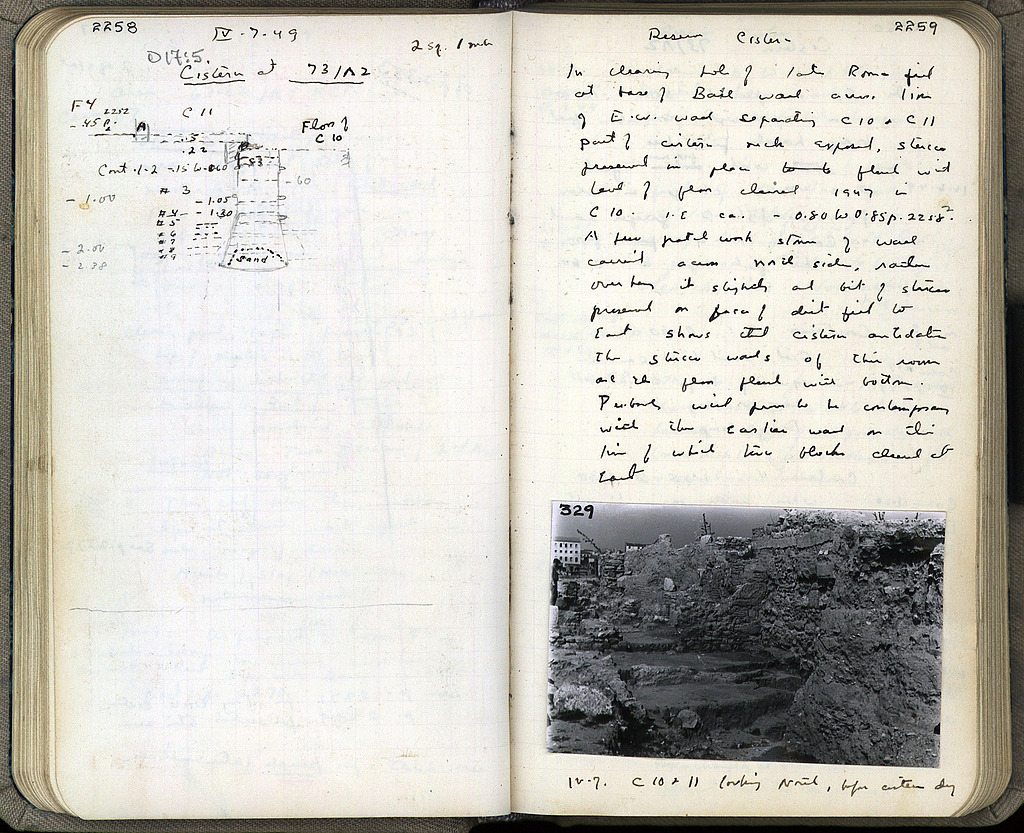 2258
IV-7-49
2 sq. 1 m
D 17:5.
Cistern at 73/ΛΖ
F4
2252
C 11
-.45 P.
A
Floor of
C 10
.22
.53
Cont. 1-2 -.15 to -.60
-60
# 3
- 1.00
- 1.05
# 4 - 1.30
# 5
# 6
# 7
# 8
# 9
- 2.00
- 2.38
sand
2259
Cistern
In clearing hole of late Roman fill
at base of Bath wall across line
of E.W. wall separating C 10 & C 11
part of cistern neck exposed, stucco
preserved in place flush with
level of floor cleared 1947 in
C 10. i.e. ca. - 0.80 to 0.85 p. 2258².
A few patch work stones of wall
carried across north side, rather
overhang it slightly and bit of stucco
preserved on face of dirt fill to
East shows that cistern antedates
the stucco walls of this room
and the floor flush with bottom.
Probably will prove to be contemporary
with the earlier wall on this
line of which two blocks cleared at
East
329
IV-7. C 10 & 11 looking North, before cistern dug